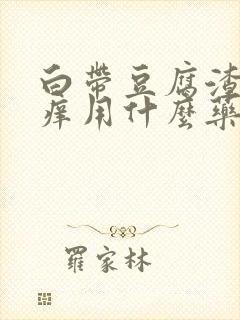 白帶豆腐渣
痒用什麼藥
羅家林